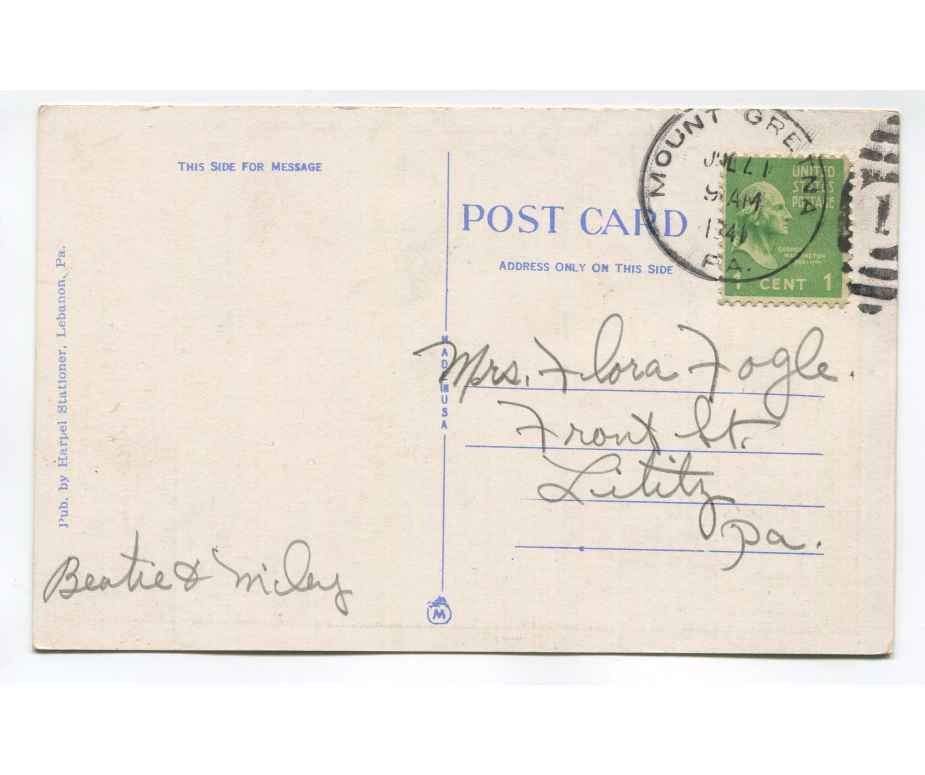 THIS SIDE FOR MESSAGE
POST CARD
ADDRESS ONLY ON THIS SIDE
MOUNT GRETNA
AM
PA.
UNITED
STATES
POSTAGE
GEORGE
WASHINGTON
1 CENT 1
1
Mrs. Flora Fogle.
Front St.
Lititz
Pa.
MADE IN USA
Pub. by Harpel Stationer, Lebanon, Pa.
Beatie & Miley
M